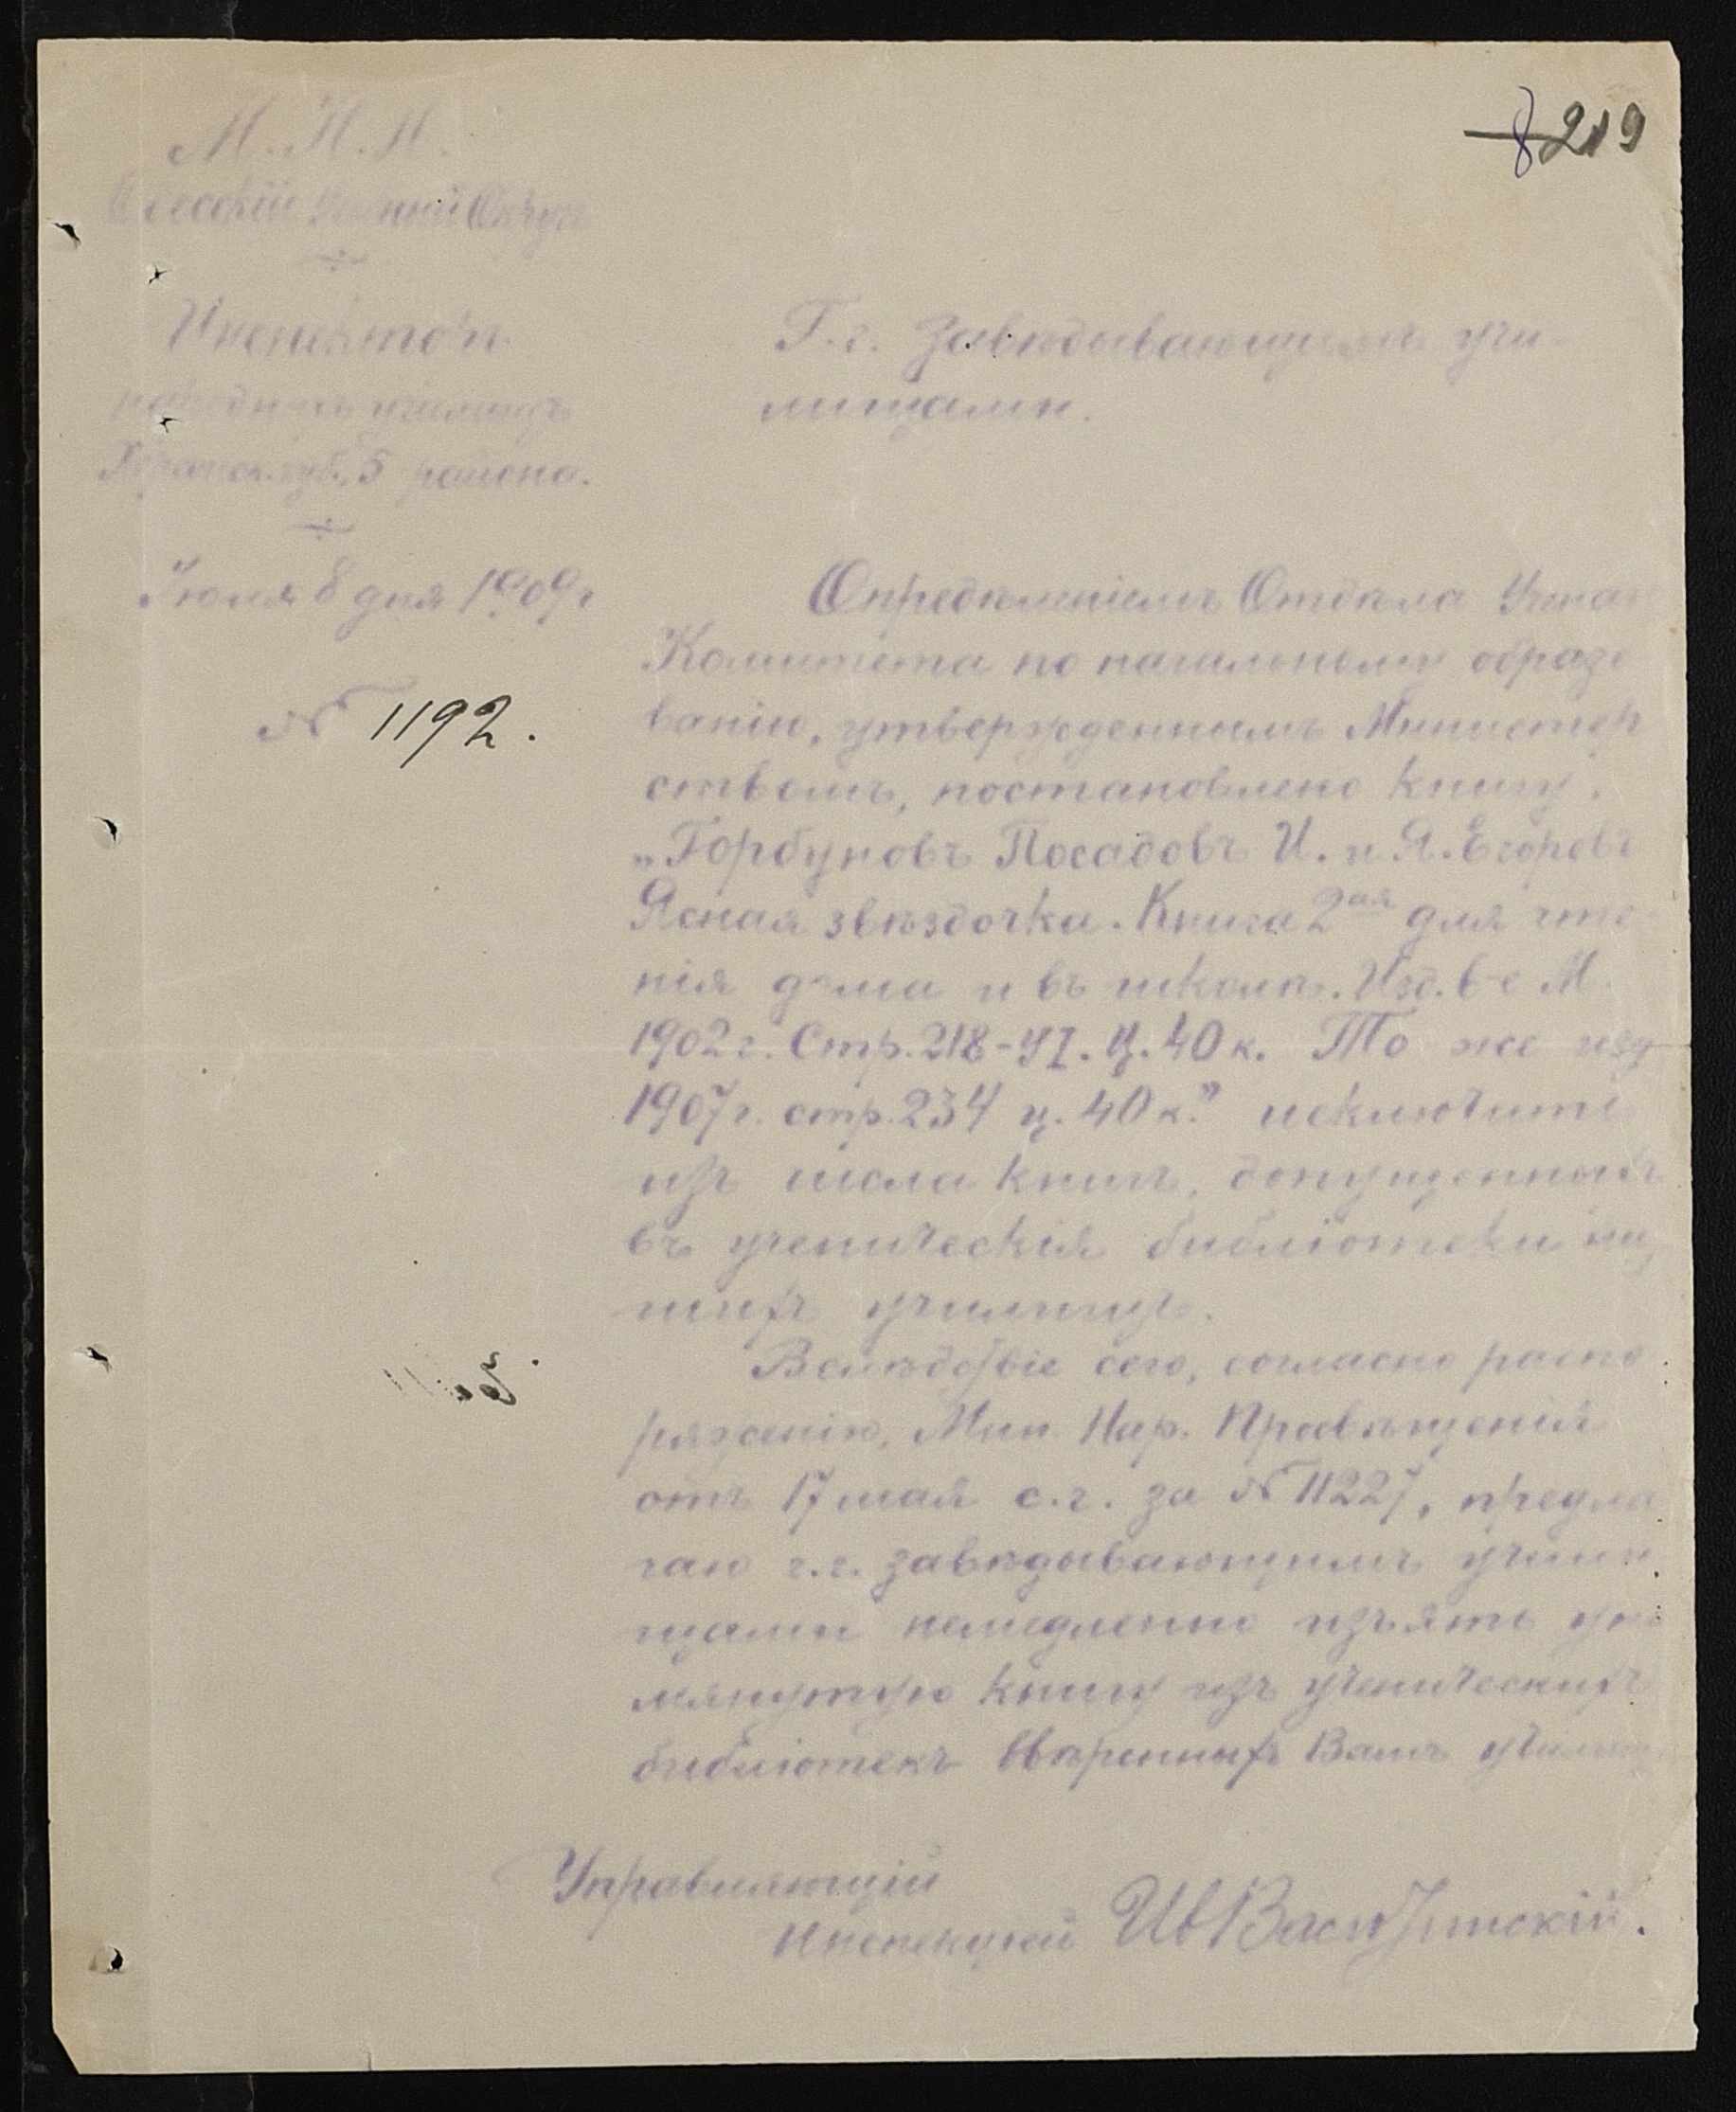 219
М.Н.П.
Одесскій Учебный Округъ
Инспекторъ
народныхъ училищъ
Херсонск. губ. 5 района.
Іюля 8 дня 1909 г
№ 1192.
Г.г. Завѣдывающимъ учи-
лищами.
Опредѣленіемъ Отдѣла Учен
Комитета по начальному образо
ванію, утвержденнымъ Министер
ствомъ, постановлено книгу.
„Горбуновъ Посадовъ И. и Я. Егоровъ
Ясная звѣздочка. Книга 2ая для чте
нія дома и въ школѣ. Изд. 6-е М.
1902 г. Стр. 218-УІ. Ц. 40 к. То же изд
1907 г. стр. 234 ц. 40 к." исключить
изъ числа книгъ, допущенныхъ
въ ученическія библіотеки низ
шихъ училищъ.
Вслѣдствіе сего, согласно распо
ряженію, Мин. Нар. Просвѣщенія
отъ 17 мая с.г. за № 11227, предла
гаю г.г. завѣдывающимъ учили
щами немедленно изъять упо
мянутую книгу изъ ученическихъ
библіотекъ ввѣренныхъ Вамъ училищ
Управляющій
Инспекціей